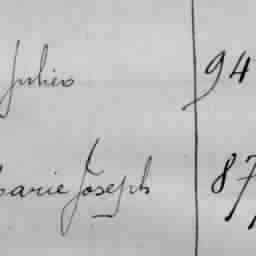 Julien 94
Marie Joseph 87